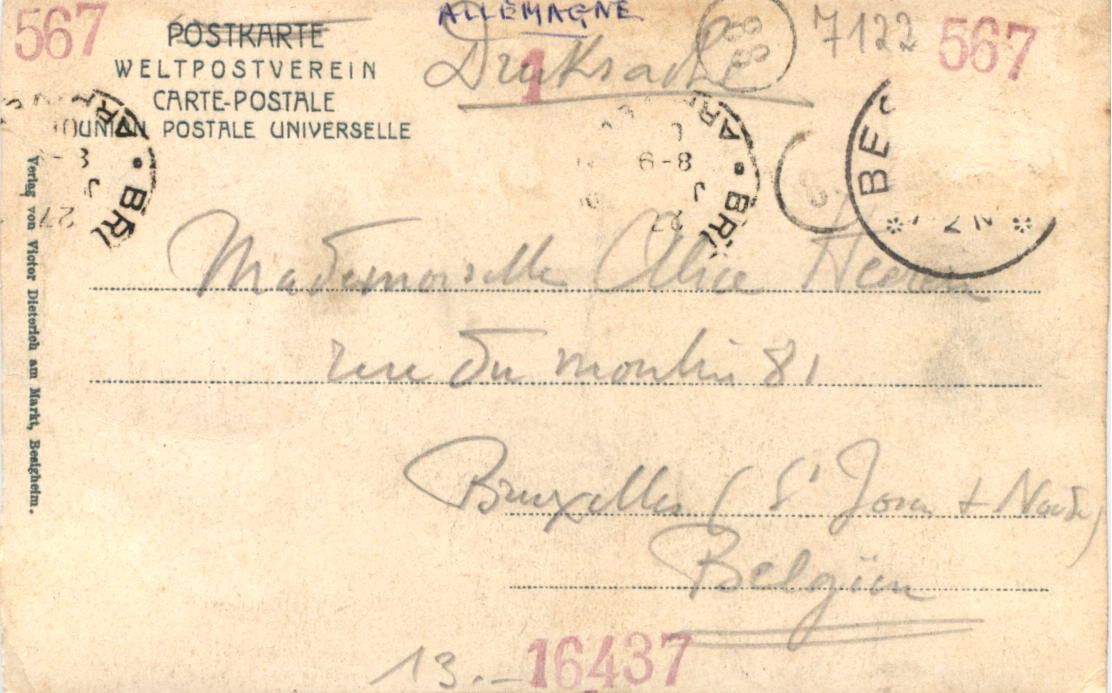 ALLEMAGNE
567 POSTKARTE Drucksache 1 7122 567
WELTPOSTVEREIN
CARTE-POSTALE
UNION POSTALE UNIVERSELLE
BRU
8-9
BRU
27
BES
Verlag von Victor Dieterich am Markt, Besigheim.
Mademoiselle Alice
rue du moulin 81
Bruxelles (St Josse
Belgien
13.- 16437